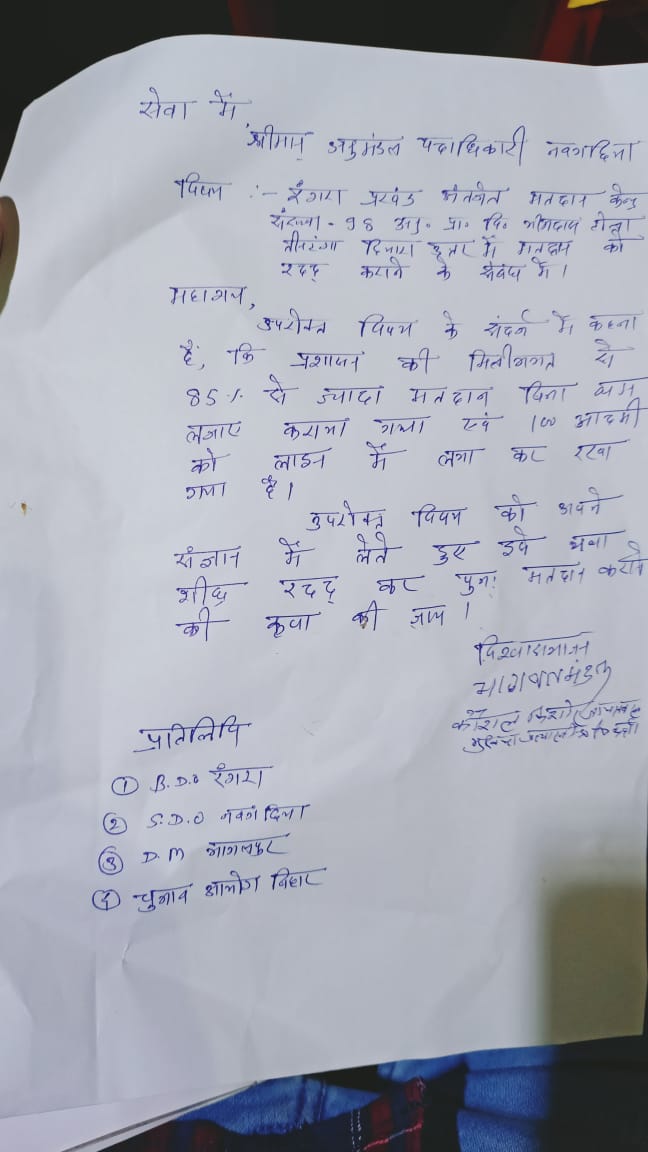 सेवा में,
श्रीमान् अनुमंडल पदाधिकारी नवगछिया
विषय :- रंगरा प्रखंड अंतर्गत मतदान केन्द्र
संख्या - 98 प्रा. वि. टोला
तीनटंगा दियारा में मतदान को
रदद् कराने के संबंध में।
महाशय,
उपरोक्त विषय के संदर्भ में कहना
है, कि प्रशासन की मिलीभगत से
85% से ज्यादा मतदान बिना
लगाए कराया गया एवं 100 आदमी
को लाइन में लगा कर रखा
गया है।
उपरोक्त विषय को अपने
संज्ञान में लेते हुए इसे यथा
शीघ्र रदद् कर पुनः मतदान कराने
की कृपा की जाय।
विश्वासभाजन
भागवत मंडल
कौशल किशोर
प्रतिलिपि
① B.D.O रंगरा
② S.D.O नवगछिया
③ D.M भागलपुर
④ चुनाव आयोग बिहार